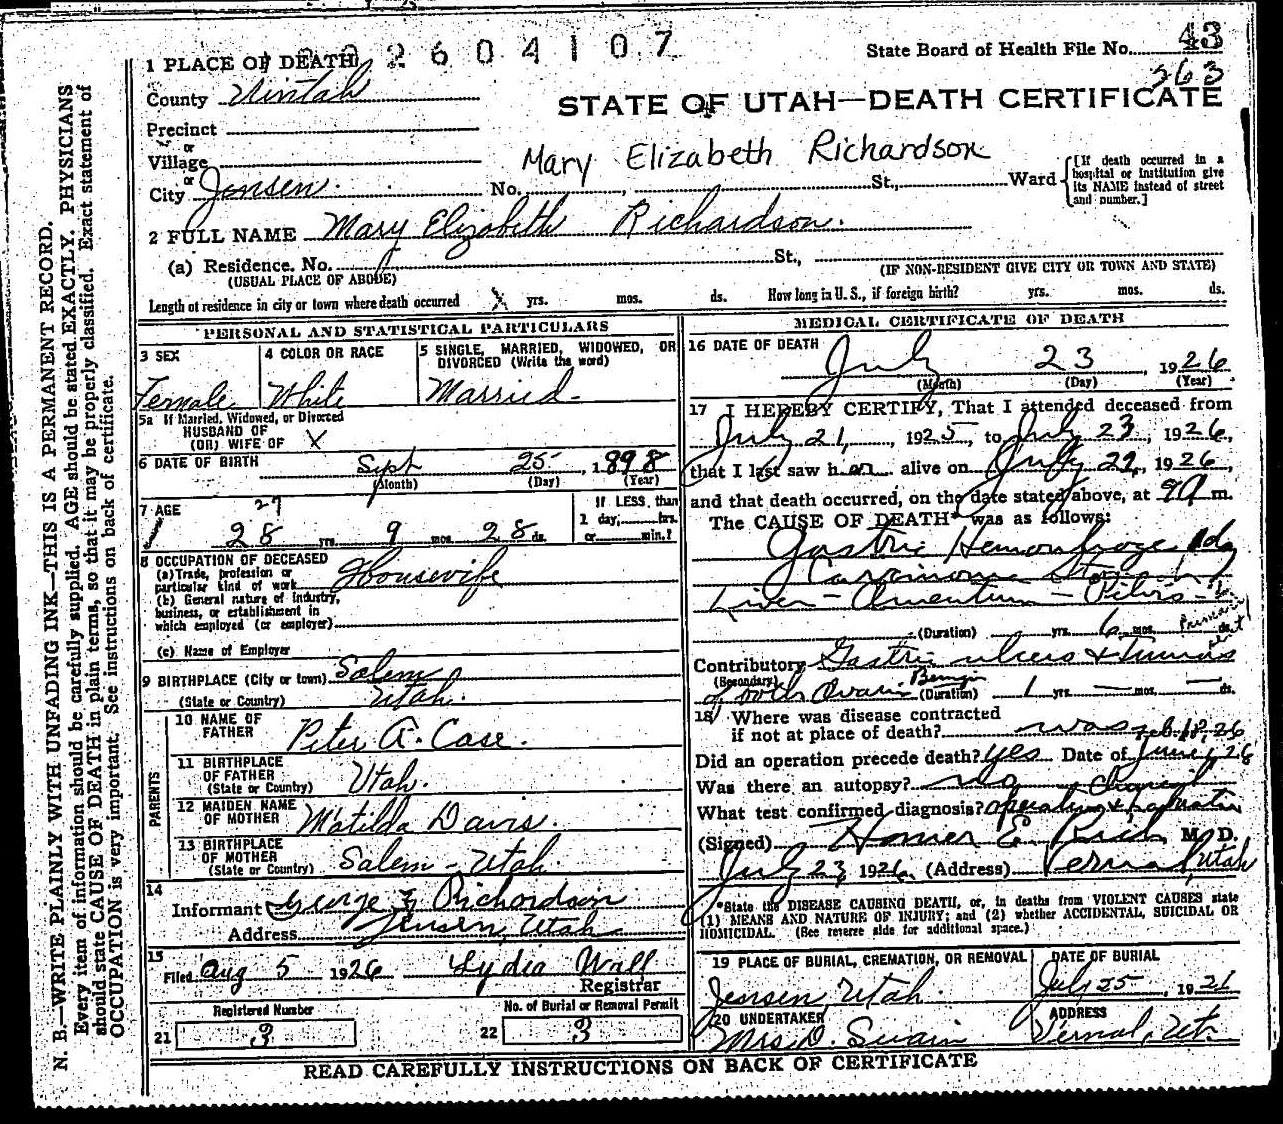 2604107
State Board of Health File No. 43
363
1 PLACE OF DEATH
County Uintah
STATE OF UTAH—DEATH CERTIFICATE
Precinct
or
Village
Mary Elizabeth Richardson
or
City Jensen. No. St., Ward
[If death occurred in a
hospital or institution give
its NAME instead of street
and number.]
2 FULL NAME Mary Elizabeth Richardson.
(a) Residence. No. St.,
(USUAL PLACE OF ABODE) (IF NON-RESIDENT GIVE CITY OR TOWN AND STATE)
Length of residence in city or town where death occurred yrs. mos. ds. How long in U. S., if foreign birth? yrs. mos. ds.
PERSONAL AND STATISTICAL PARTICULARS
3 SEX
Female
4 COLOR OR RACE
White
5 SINGLE, MARRIED, WIDOWED, OR
DIVORCED (Write the word)
Married
5a If Married, Widowed, or Divorced
HUSBAND OF
(OR) WIFE OF X
6 DATE OF BIRTH Sept 25, 1898
(Month) (Day) (Year)
7 AGE 27
28 yrs. 9 mos. 28 ds.
If LESS than
1 day, hrs.
or min.?
8 OCCUPATION OF DECEASED
(a) Trade, profession or
particular kind of work Housewife
(b) General nature of Industry,
business, or establishment in
which employed (or employer)
(c) Name of Employer
9 BIRTHPLACE (City or town) Salem
(State or Country) Utah.
PARENTS
10 NAME OF
FATHER Peter A. Case.
11 BIRTHPLACE
OF FATHER
(State or Country) Utah.
12 MAIDEN NAME
OF MOTHER Matilda Davis.
13 BIRTHPLACE
OF MOTHER
(State or Country) Salem - Utah
14
Informant George Richardson
Address Jensen, Utah
15
Filed Aug 5 1926 Lydia Wall
Registrar
Registered Number
21 3
No. of Burial or Removal Permit
22 3
MEDICAL CERTIFICATE OF DEATH
16 DATE OF DEATH
July 23, 1926
(Month) (Day) (Year)
17 I HEREBY CERTIFY, That I attended deceased from
July 21, 1925, to July 23, 1926,
that I last saw her alive on July 22, 1926,
and that death occurred, on the date stated above, at 9 a m.
The CAUSE OF DEATH* was as follows:
Gastric Hemorrhage
Carcinoma Stomach
Liver - Omentum - Pelvis
(Duration) yrs. 6 mos. ds.
Contributory Gastric ulcers & Tumors
(Secondary) of both Ovaries Benign (Duration) 1 yrs. — mos. — ds.
18 Where was disease contracted
if not at place of death? was Feb. 18, 26
Did an operation precede death? yes Date of June 1, 26
Was there an autopsy? no
What test confirmed diagnosis? operation &
(Signed) Homer E. Rich M. D.
July 23, 1926. (Address) Vernal, Utah
*State the DISEASE CAUSING DEATH, or, in deaths from VIOLENT CAUSES state
(1) MEANS AND NATURE OF INJURY; and (2) whether ACCIDENTAL, SUICIDAL OR
HOMICIDAL. (See reverse side for additional space.)
19 PLACE OF BURIAL, CREMATION, OR REMOVAL
Jensen, Utah.
DATE OF BURIAL
July 25, 1926
20 UNDERTAKER
Mrs D. Swain
ADDRESS
Vernal, Ut.
READ CAREFULLY INSTRUCTIONS ON BACK OF CERTIFICATE
N. B.—WRITE PLAINLY WITH UNFADING INK—THIS IS A PERMANENT RECORD.
Every item of information should be carefully supplied. AGE should be stated EXACTLY. PHYSICIANS
should state CAUSE OF DEATH in plain terms, so that it may be properly classified. Exact statement of
OCCUPATION is very important. See instructions on back of certificate.